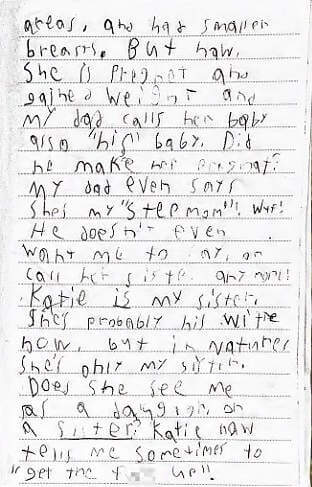 areas, and had smaller
breasts. But now,
She is pregnet and
gained weight and
my dad calls her baby
also "his" baby. Did
he make her pregnat?
My dad even says
shes my "stepmom"! Wtf!
He doesn't even
want me to say, or
call her sister any more!
Katie is my sister.
She's probably his wife
now, but in natures
She's only my sister.
Does she see me
as a or
a sister? Katie now
tells me sometimes to
"get the f up"!